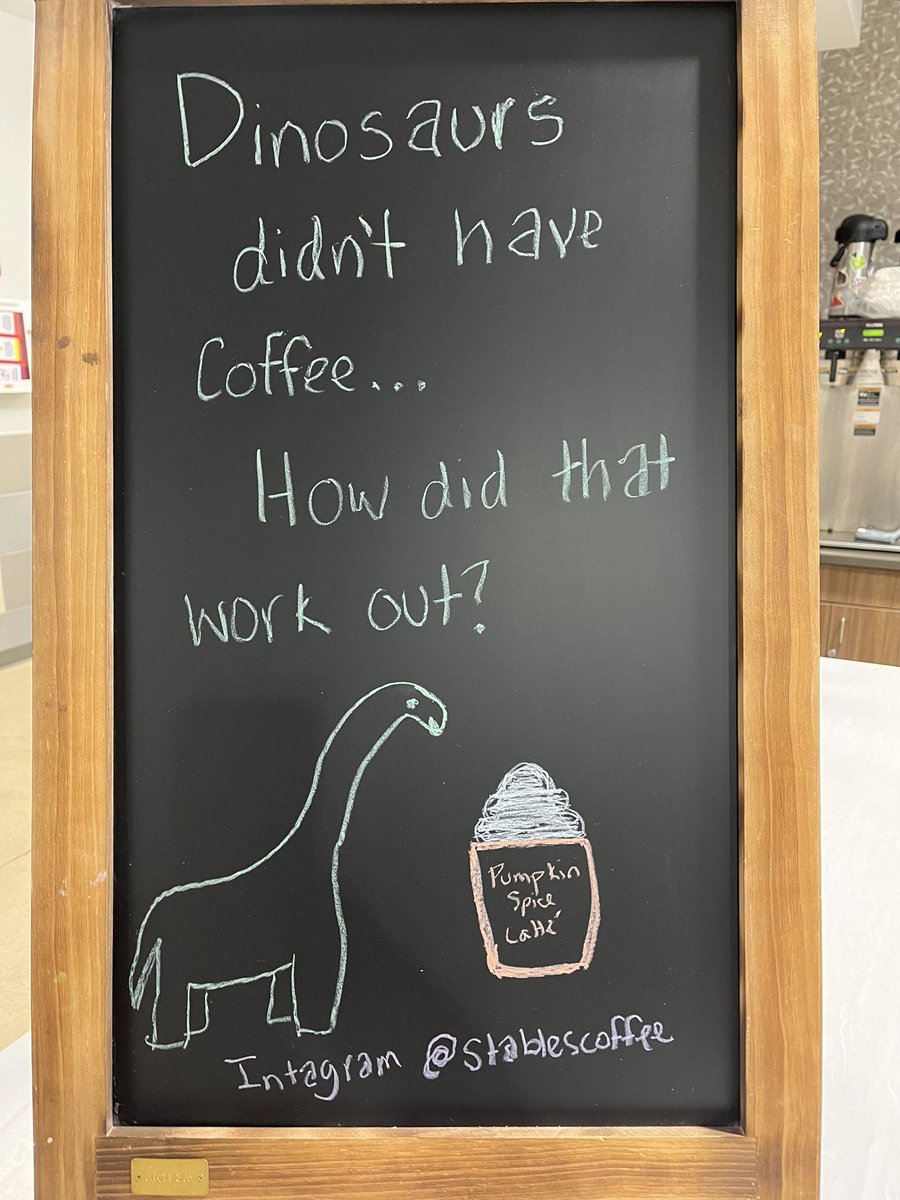 Dinosaurs
didn't have
Coffee...
How did that
work out?
Pumpkin
Spice
Latté
Intagram @stablescoffee
ARTEZA